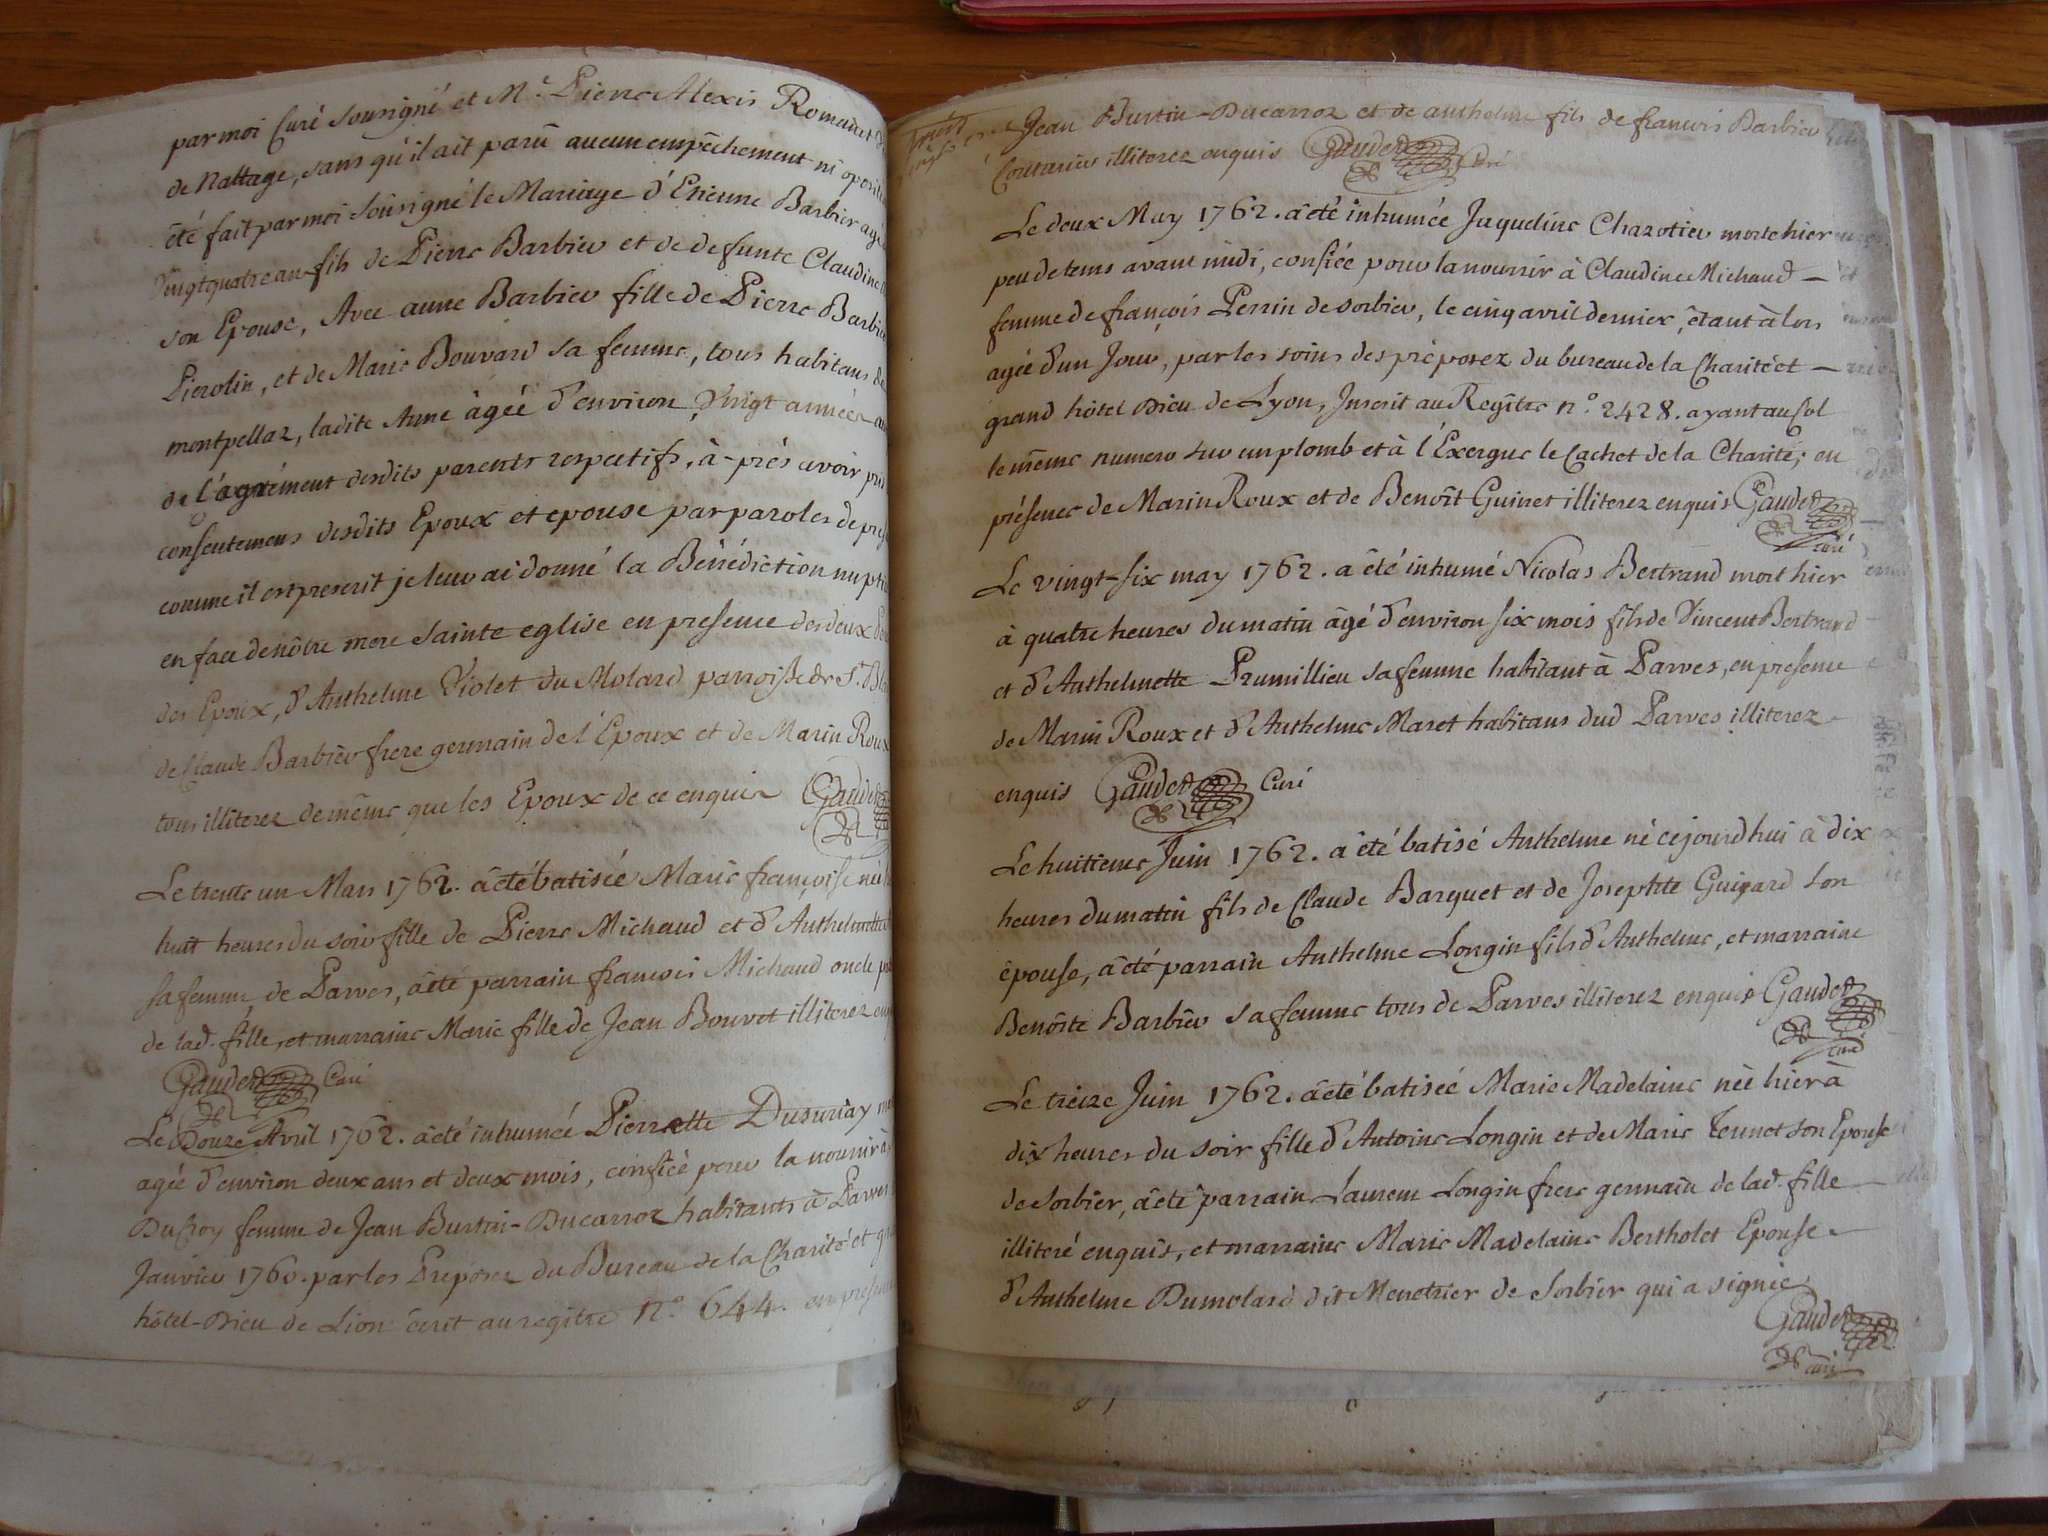 par moi Curé soussigné et Mr. Pierre Alexis Romanet
de Nattage, sans qu'il ait parû aucun empêchement ni oposit
été fait par moi soûsigné le Mariage d'Etienne Barbier agé
Vingtquatre an fils de Pierre Barbier et de defunte Claudine
son Epouse, Avec anne Barbier fille de Pierre Barbier
Pierolin, et de Marie Bouvard sa femme, tous habitans de
montpellaz, ladite Anne âgée d'environ Vingt années
de l'agrément desdits parents respectifs, à-près avoir pris
consentemens desdits Epoux et epouse par paroles de pres
comme il est prescrit je leur ai donné la Bénédiction nuptia
en face de nôtre mere Sainte eglise en presence des deux
des Epoux, d'Anthelme Violet du Molard parroisse de St. Bla
de Claude Barbier frere germain de l'Epoux et de Marin Roux
tous illiterez de même que les Epoux de ce enquis Gaudet
Le trente un Mars 1762. a été batisée Marie françoise née
huit heures du soir fille de Pierre Michaud et d'Anthelmette
sa femme de Parves, a été parrain françois Michaud oncle
de lad. fille, et marraine Marie fille de Jean Bouvet illiterez en
Gaudet Curé
Le Douze Avril 1762. a été inhumée Pierrette Dusuriay
agée d'environ deux ans et deux mois, confiée pour la nourrir à
Ducroy femme de Jean Burtin-Ducarroz habitants à Parves
Janvier 1760. par les Preposez du Bureau de la Charité et
hôtel-Dieu de Lion écrit au regitre n.o 644. en presence
Jean Burtin-Ducarroz et de anthelme fils de francois Barbier
Couturier illiterez enquis Gaudet Curé
Le deux May 1762. a été inhumée Jaqueline Charotier morte hier
peu de tems avant midi, confiée pour la nourrir à Claudine Michaud –
femme de françois Perrin de sorbier, le cinq avril dernier, étant à lors
agée d'un Jour, par les soins des préposez du bureau de la Charité et –
grand hôtel Dieu de Lyon, Inscrit au Regître n.o 2428. ayant au Col
le même numero sur un plomb et à l'Exergue le Cachet de la Charité; en
présence de Marin Roux et de Benoît Guinet illiterez enquis Gaudet
curé
Le vingt-six may 1762. a été inhumé Nicolas Bertrand mort hier
à quatre heures du matin âgé d'environ six mois fils de Vincent Bertrand
et d'Anthelmette Prumillieu sa femme habitant à Parves, en presence
de Marin Roux et d'Anthelme Maret habitans dud Parves illiterez
enquis Gaudet Curé
Le huitieme Juin 1762. a été batisé Anthelme né cejourdhui à dix
heures du matin fils de Claude Barquet et de Josephte Guigard son
épouse, a été parrain Anthelme Longin fils d'Anthelme, et marraine
Benôite Barbier sa femme tous de Parves illiterez enquis Gaudet
curé
Le treize Juin 1762. a été batisée Marie Madelaine née hier à
dix heures du soir fille d'Antoine Longin et de Marie Tennet son Epouse
de Sorbier, a été parrain Laurent Longin frere germain de lad. fille
illiteré enquis, et marraine Marie Madelaine Bertholet Epouse
d'Anthelme Dumolard dit Menetrier de Sorbier qui a signée
Gaudet
curé